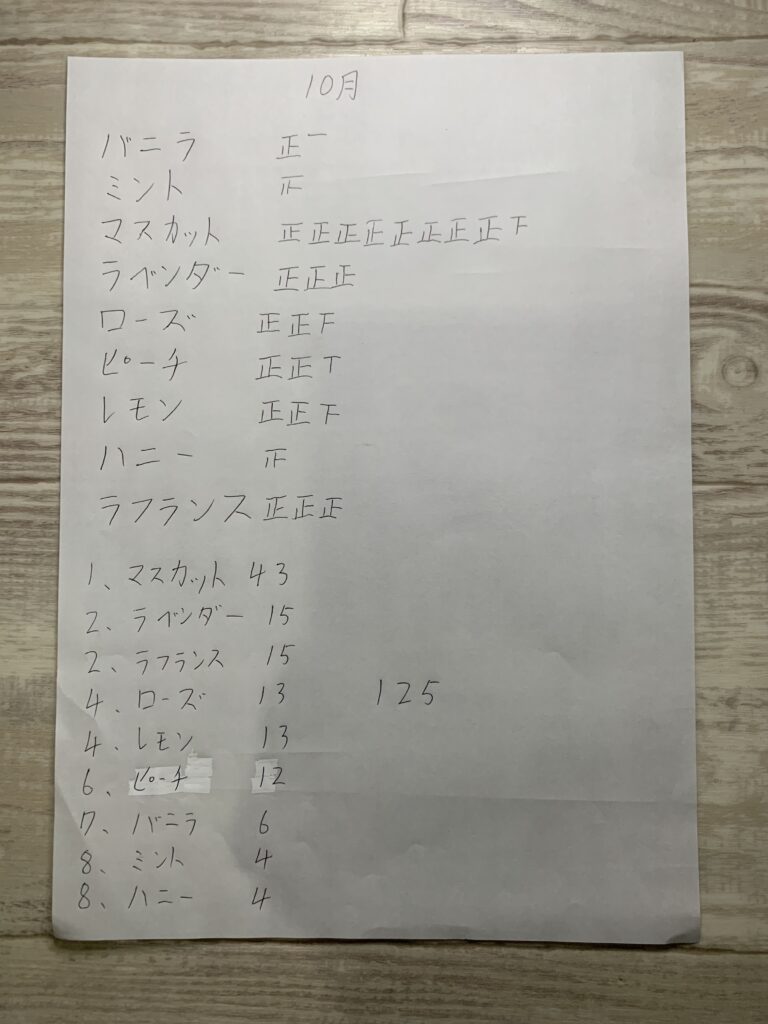 10月
バニラ 正一
ミント 𤴓
マスカット 正正正正正正正正下
ラベンダー 正正正
ローズ 正正下
ピーチ 正正丅
レモン 正正下
ハニー 𤴓
ラフランス 正正正
1、マスカット 43
2、ラベンダー 15
2、ラフランス 15
4、ローズ 13 125
4、レモン 13
6、ピーチ 12
7、バニラ 6
8、ミント 4
8、ハニー 4